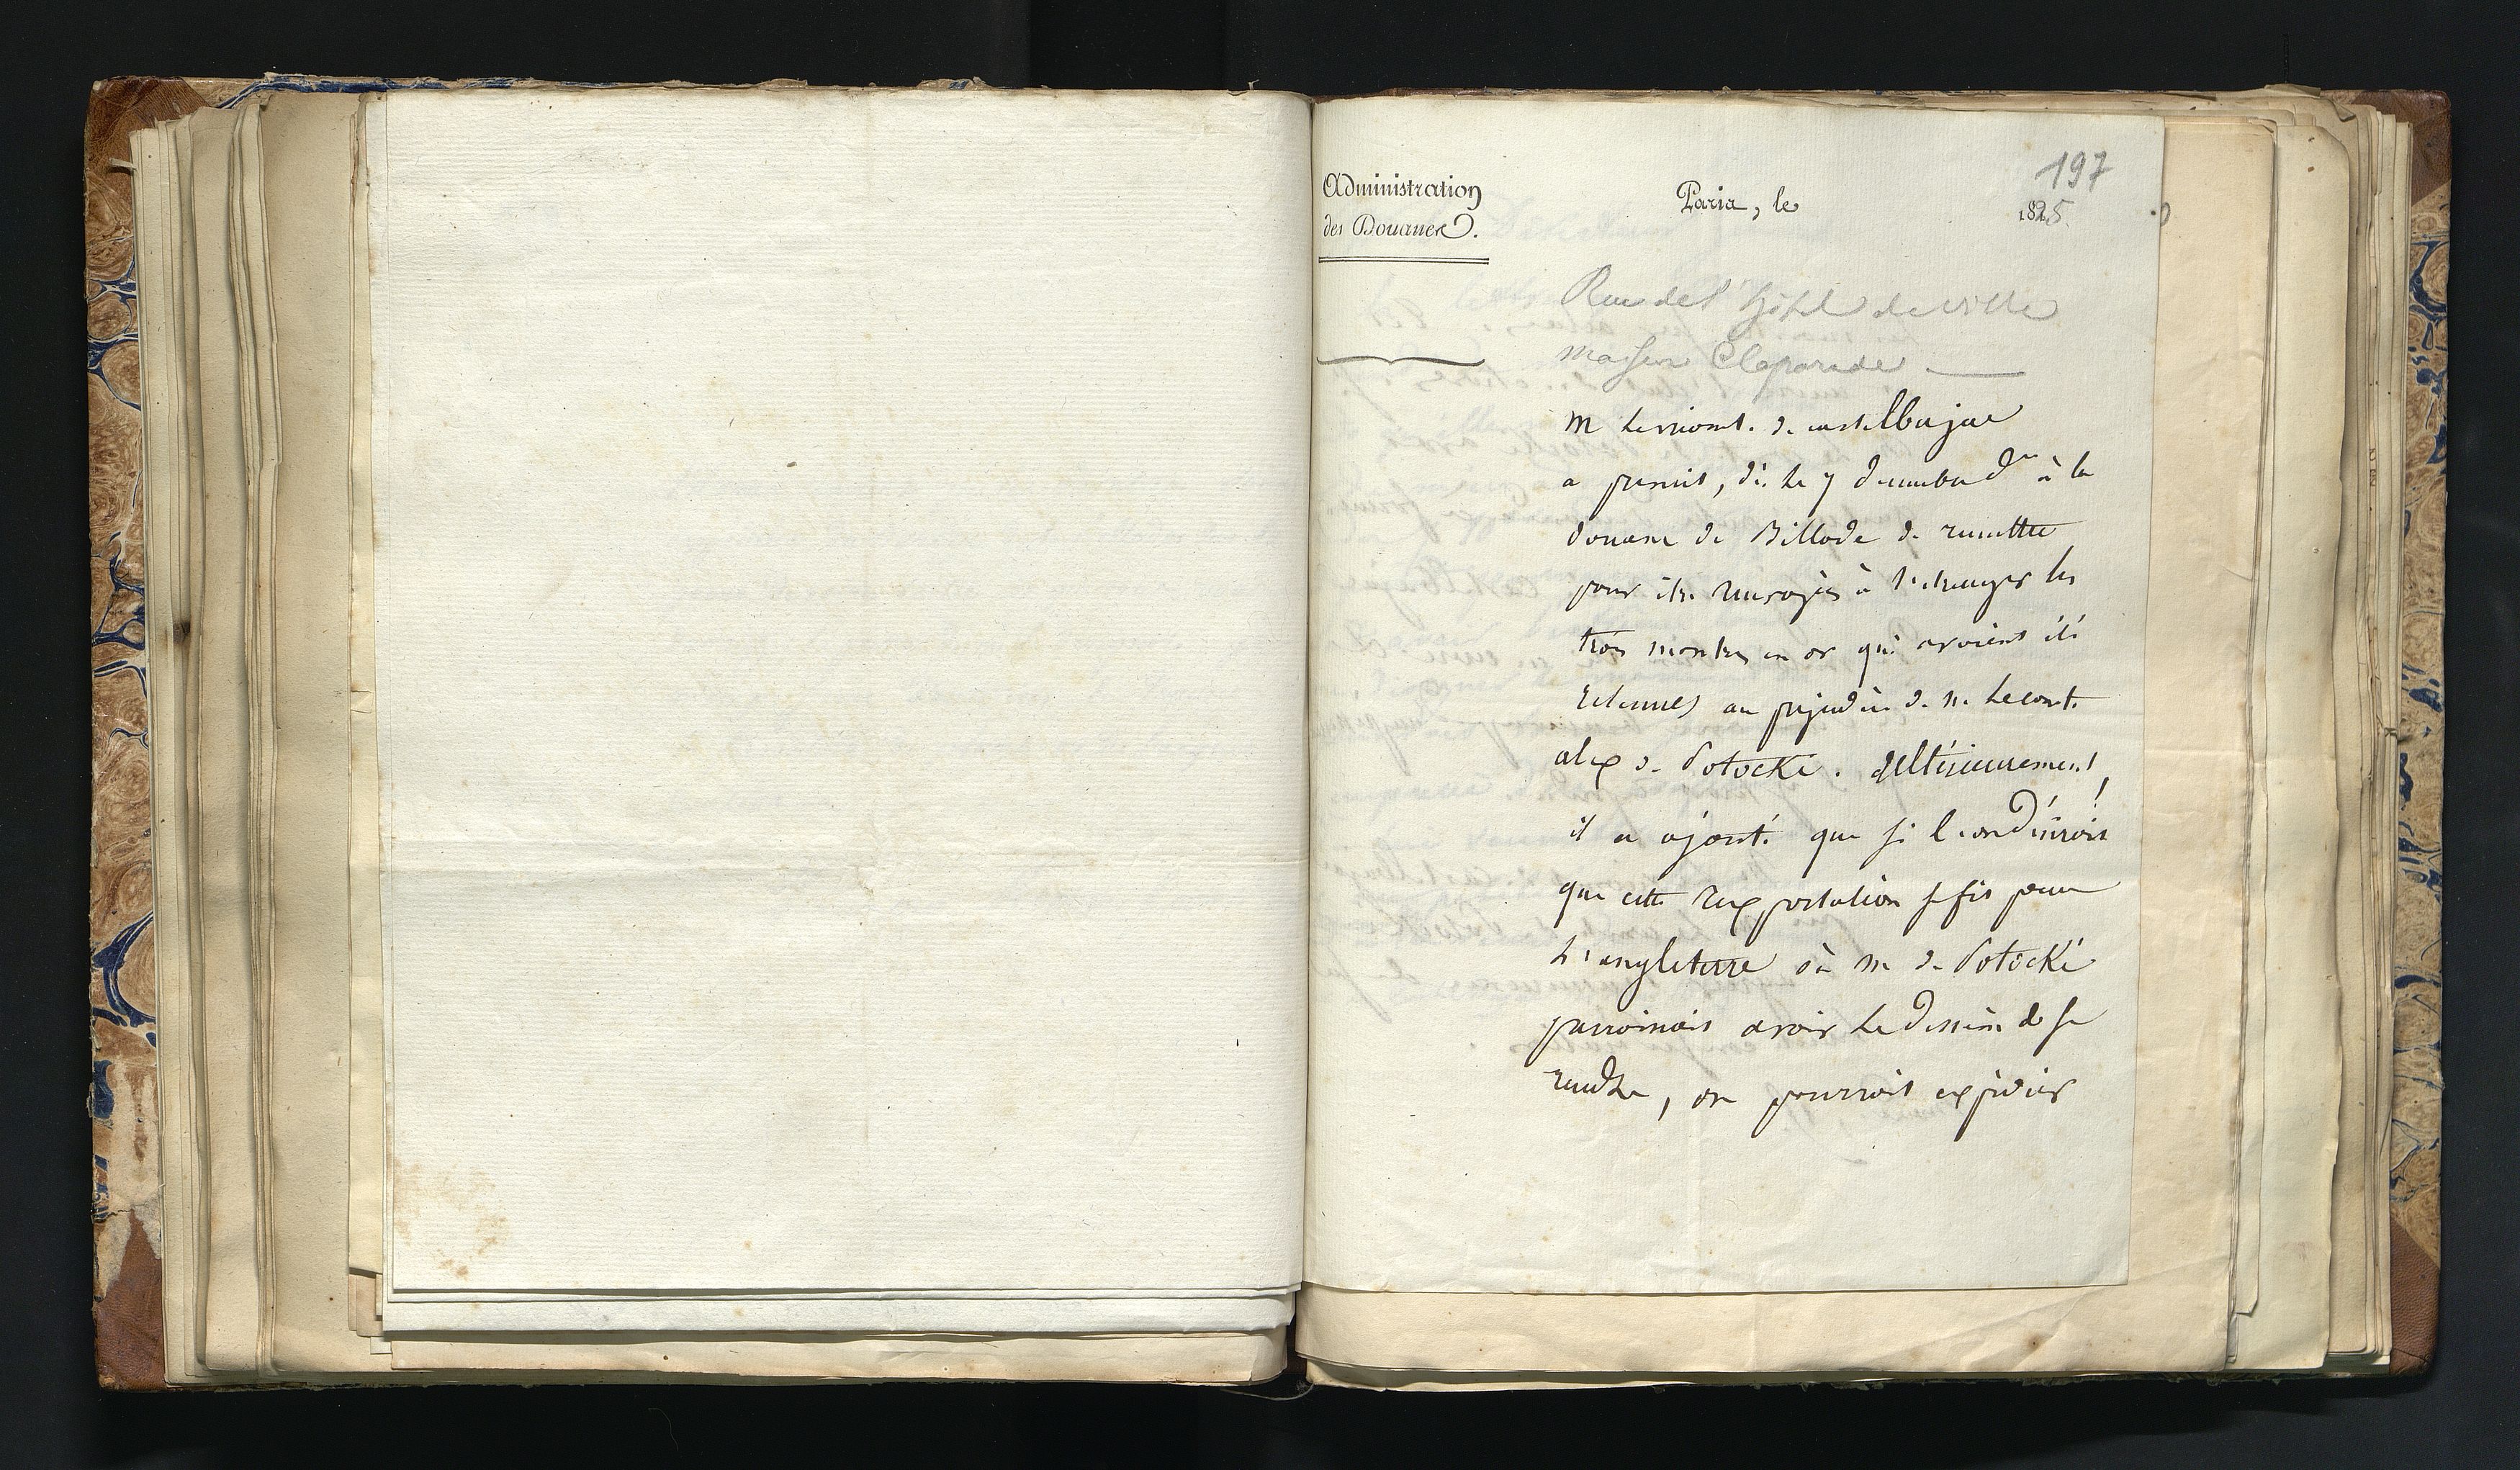 197
Administration
des Douanes.
Paris, le 1825
Rue de l'hôtel de ville
maison Claparade
M le vicomte. de castelbajac
a prescrit, dès le 7 décembre dr à la
douane de Bellegarde de remettre
pour être renvoyées à l'etranger les
trois montres en or qui avoient été
retenues au préjudice de M. Lecomte
alex de Potocki. Ultérieurement,
il a ajouté que si l'on désiroit
que cette réexportation se fit pour
L'angleterre où M de Potocki
paroissait avoir le dessein de se
rendre, on pourroit expédier